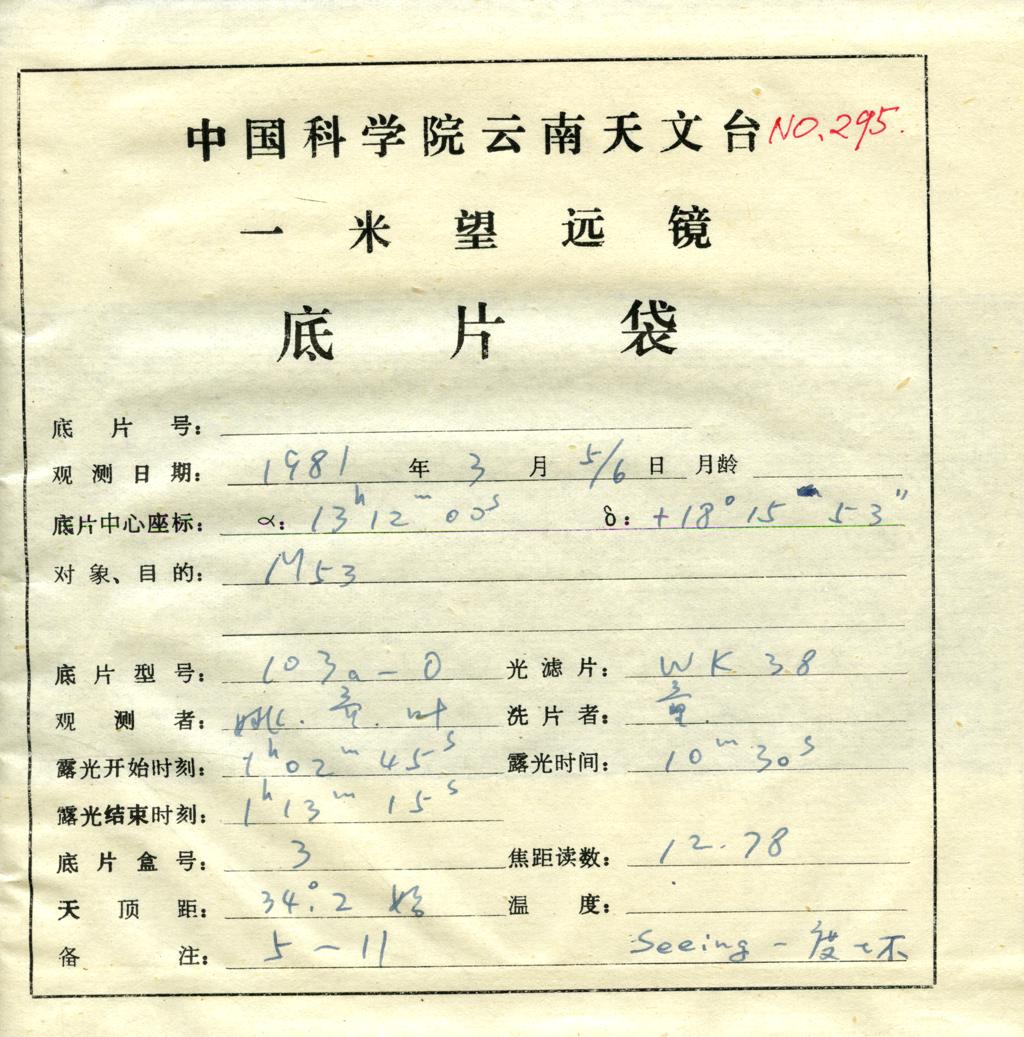 中国科学院云南天文台 NO.295.
一米望远镜
底片袋
底片号：
观测日期： 1981 年 3 月 5/6 日 月龄
底片中心座标： α： 13h12m00s δ： +18°15 53"
对象、目的： M53
底片型号： 103a-O 光滤片： WK 38
观测者： 姚. 叶 洗片者：
露光开始时刻： 1h02m45s 露光时间： 10m30s
露光结束时刻： 1h13m15s
底片盒号： 3 焦距读数： 12.78
天顶距： 34°.2 始 温度：
备注： 5-11 Seeing